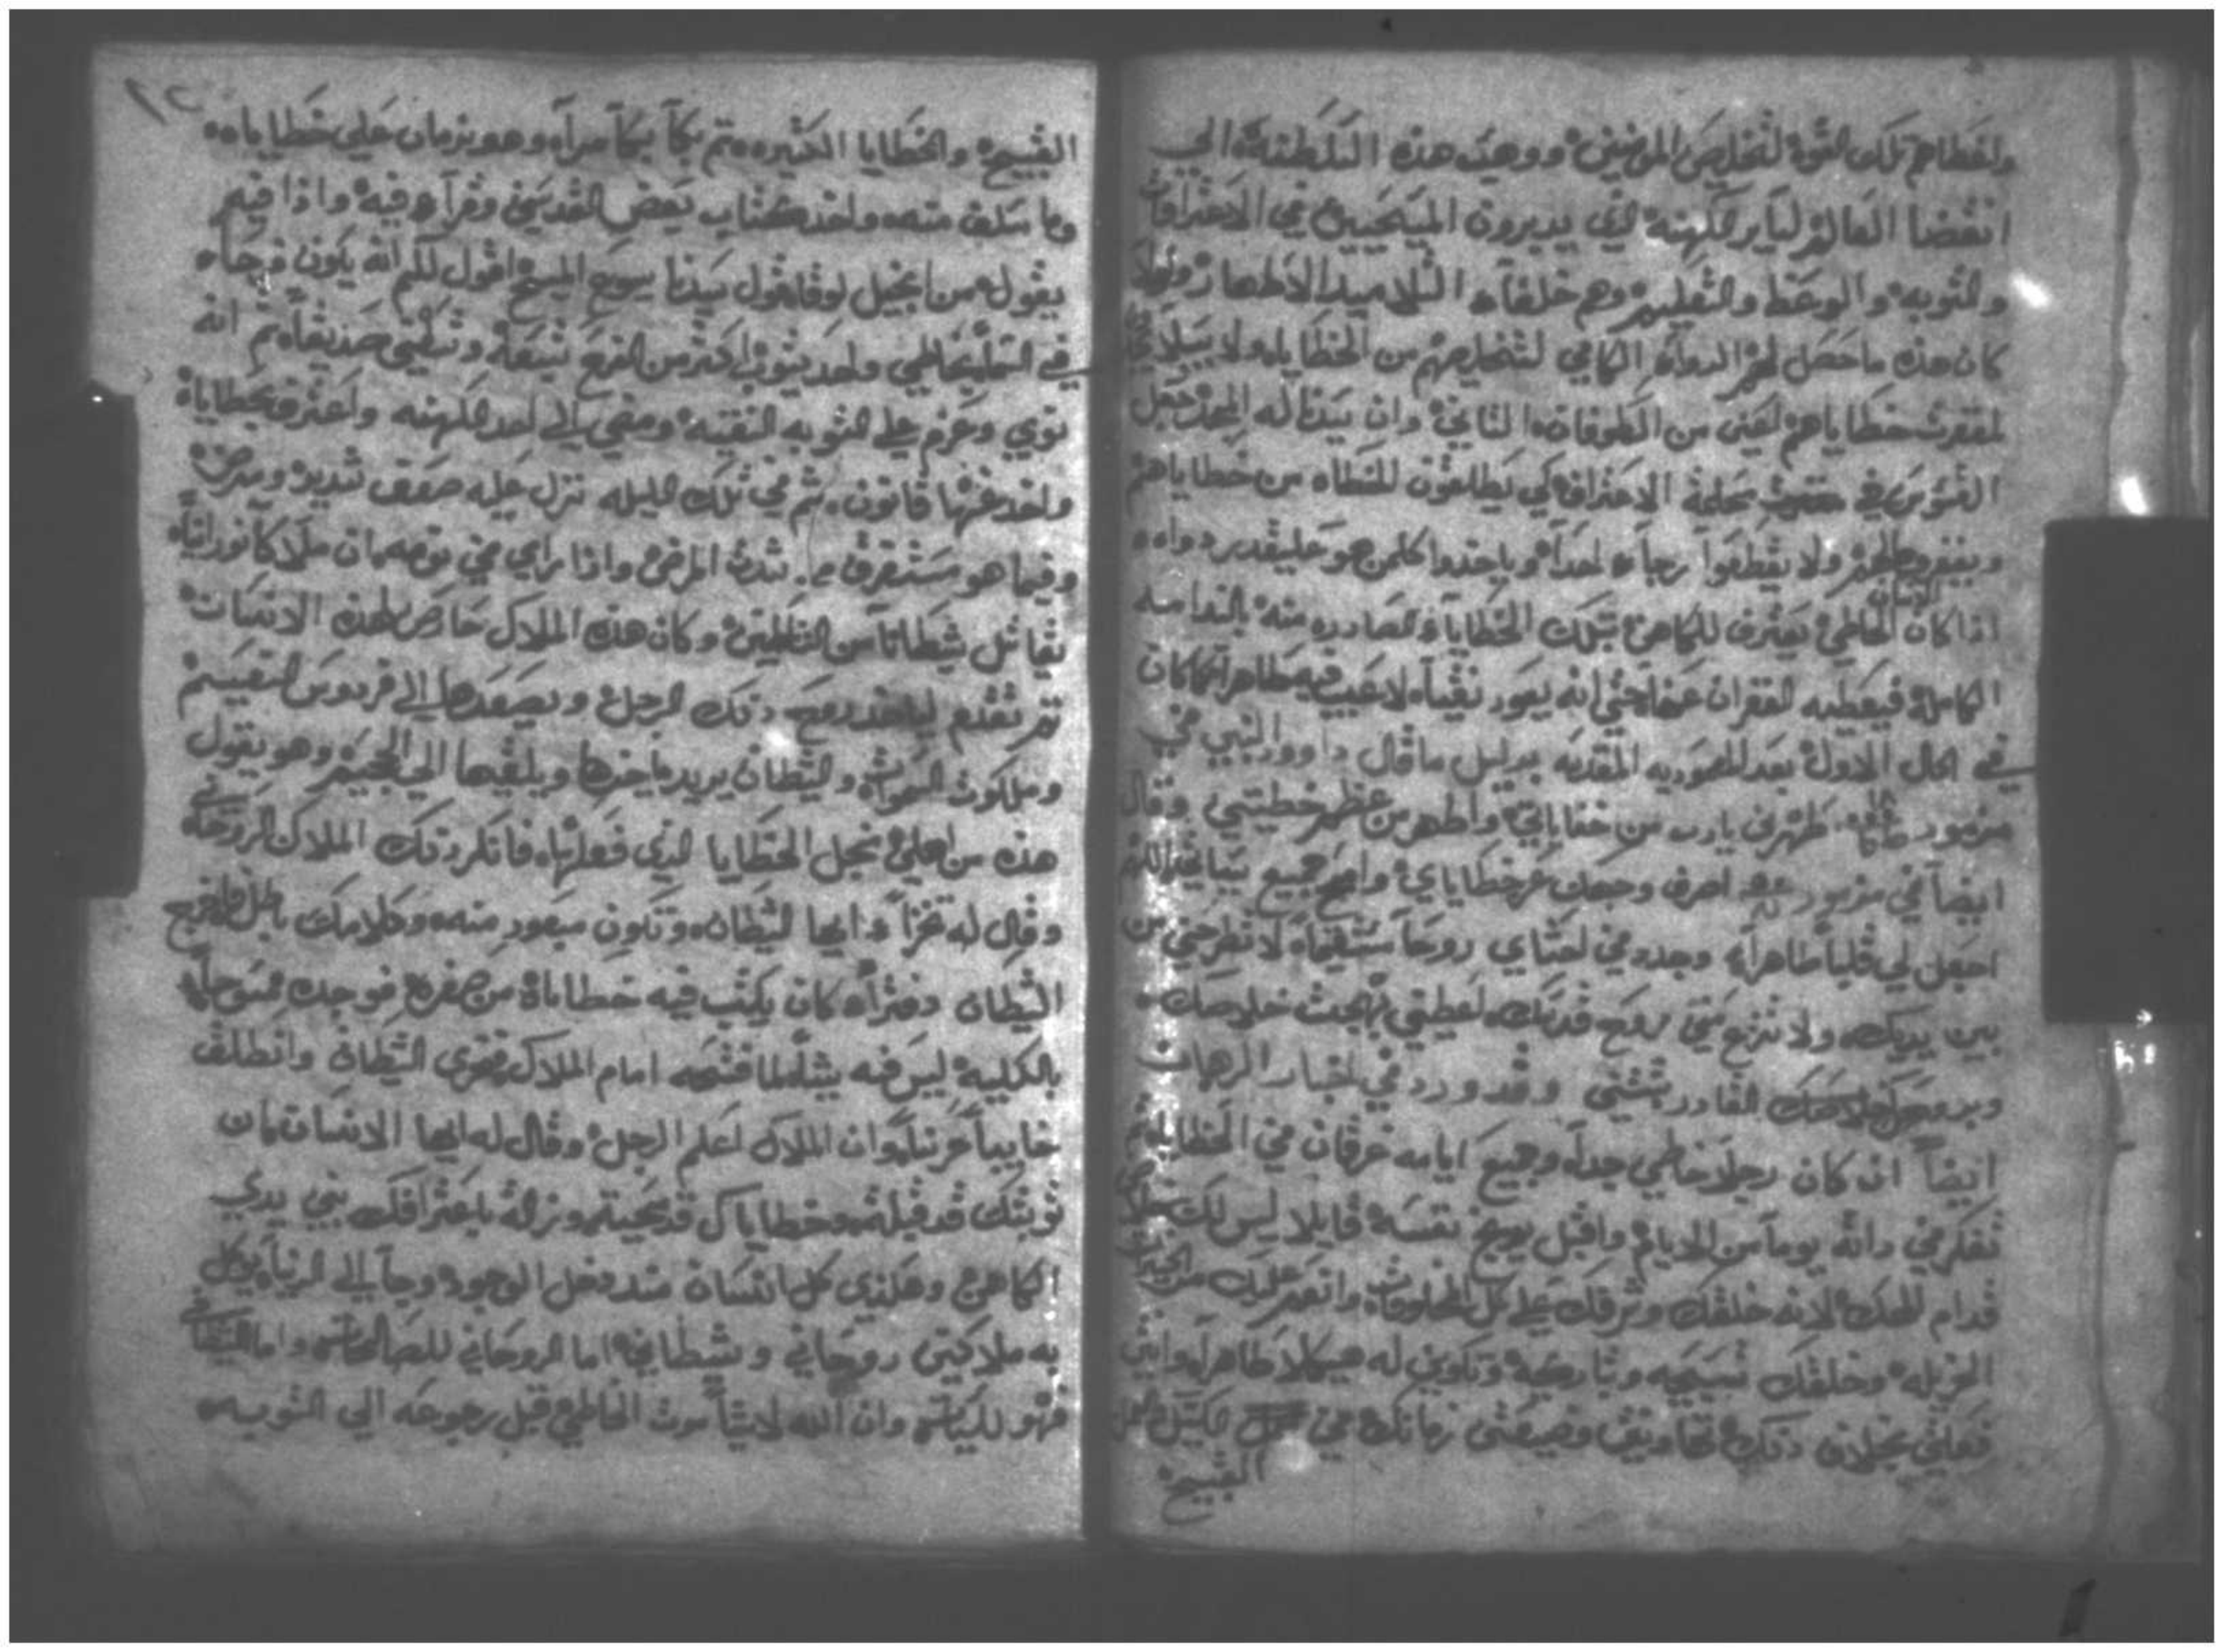 واعطاهم تلك القوة لتخليص المومنين ووهب هذه السلطنه الي
انقضا العالم لساير الكهنه الذي يديرون المسيحيين في الاعتراف
والتوبه والوعظ والتعليم وهم خلفاء التلاميد الاطهار ولولا
كان هذه ما حصل لهم الدواء الكافي لتخليصهم من الخطايا ولا سبيلا
لمغفرت خطاياهم اعني من الطوفان الثاني وان سيدنا له المجد جعل
القسوس في سحلمة الاعتراف كي يطلقون للخطاه من خطاياهم
ولا يقطعوا رجاء احداً وياخدوا كلمن هو علي قدر دواه
اذا كان الانسان الخاطي يعترف للكاهن بتلك الخطايا الصادره منه بالندامه
الكامله فيعطيه الغفران عنها حتي انه يعود نقياً لا عيب فيه طاهراً كما كان
في الحال الاول بعد المعموديه المقدسه بدليل ما قال داوود النبي في
مزمور طهرني يارب من خفاياتي واطهر من عظم خطيتي وقال
ايضاً في مزمور اصرف وجهك عن خطاياي وامح جميع سياتي اللهم
اجعل لي قلباً طاهراً وجدد في احشاي روحاً مستقيماً لا تطرحني من
بين يديك ولا تنزع مني روح قدسك اعطيني بهجت خلاصك
وبروحك القادر ثبتني وقد ورد في اخبار الرهبان
ايضاً انه كان رجلاً خاطي جداً وجميع ايامه غرقان في الخطايا ثم
تفكر في داته يوماً من الايام واقبل يوبخ نفسه قايلا ليس لك خلاص
قدام الاهك لانه خلقك وشرفك علي كل المخلوقات وانعم عليك من الخيرات
الجزيله وخلقك تسبحه وتباركه وتكون له هيكلا طاهراً وانت
فعلتي بخلاف دلك وضيعتي زمانك في الكسل والعمل
القبيح
١٢
القبيح والخطايا الكثيره ثم بكا بكاً مراً وهو ندمان علي خطاياه
وما سلف منه واخد كتاب بعض القديسين وقرا فيه واذا فيه
يقول من انجيل لوقا قول سيدنا يسوع المسيح اقول لكم انه يكون فرحاً
في السما بخاطي واحد يتوب اكثر من التسع تسعه وتسعين صديقاً ثم انه
نوي وعزم علي التوبه النقيه ومضي الي احد الكهنه واعترف بخطاياه
واخد عنها قانون ثم في تلك الليله نزل عليه ضعف شديد ومرض
وفيما هو مستغرق من شدة المرض واذا راي في نومه ان ملاكاً نورانياً
يقاتل شيطاناً من الشياطين وكان هذا الملاك حارس لهذه الانسان
ثم تقدم لياخد روح دلك الرجل ويصعدها الي فردوس النعيم
وملكوت السموات والشيطان يريد ياخدها ويلقيها الي الجحيم وهو يقول
هذه من اهلي نجل الخطايا الذي فعلها فانكر دلك الملاك الروحاني
وقال له تخزأ ايها الشيطان وتكون مبعود منه وكلامك باطل فاخرج
الشيطان دفتراً كان يكتب فيه خطاياه من صغره فوجده ممسوحاً
بالكليه ليس فيه شيئاً لما فتحه امام الملاك فخزي الشيطان وانطلق
خايباً حزيناً وان الملاك اعلم الرجل وقال له ايها الانسان ان
توبتك قد قبلت وخطاياك قد محيت وزالت باعترافك بين يدي
الكاهن وهكذي كل انسان منذ دخل الوجود وجا الي الدنيا يوكل
به ملاكين روحاني وشيطاني اما الروحاني للصالحات واما الشيطاني
فهو للسيات وان الله لا يشا موت الخاطي قبل رجوعه الي التوبه